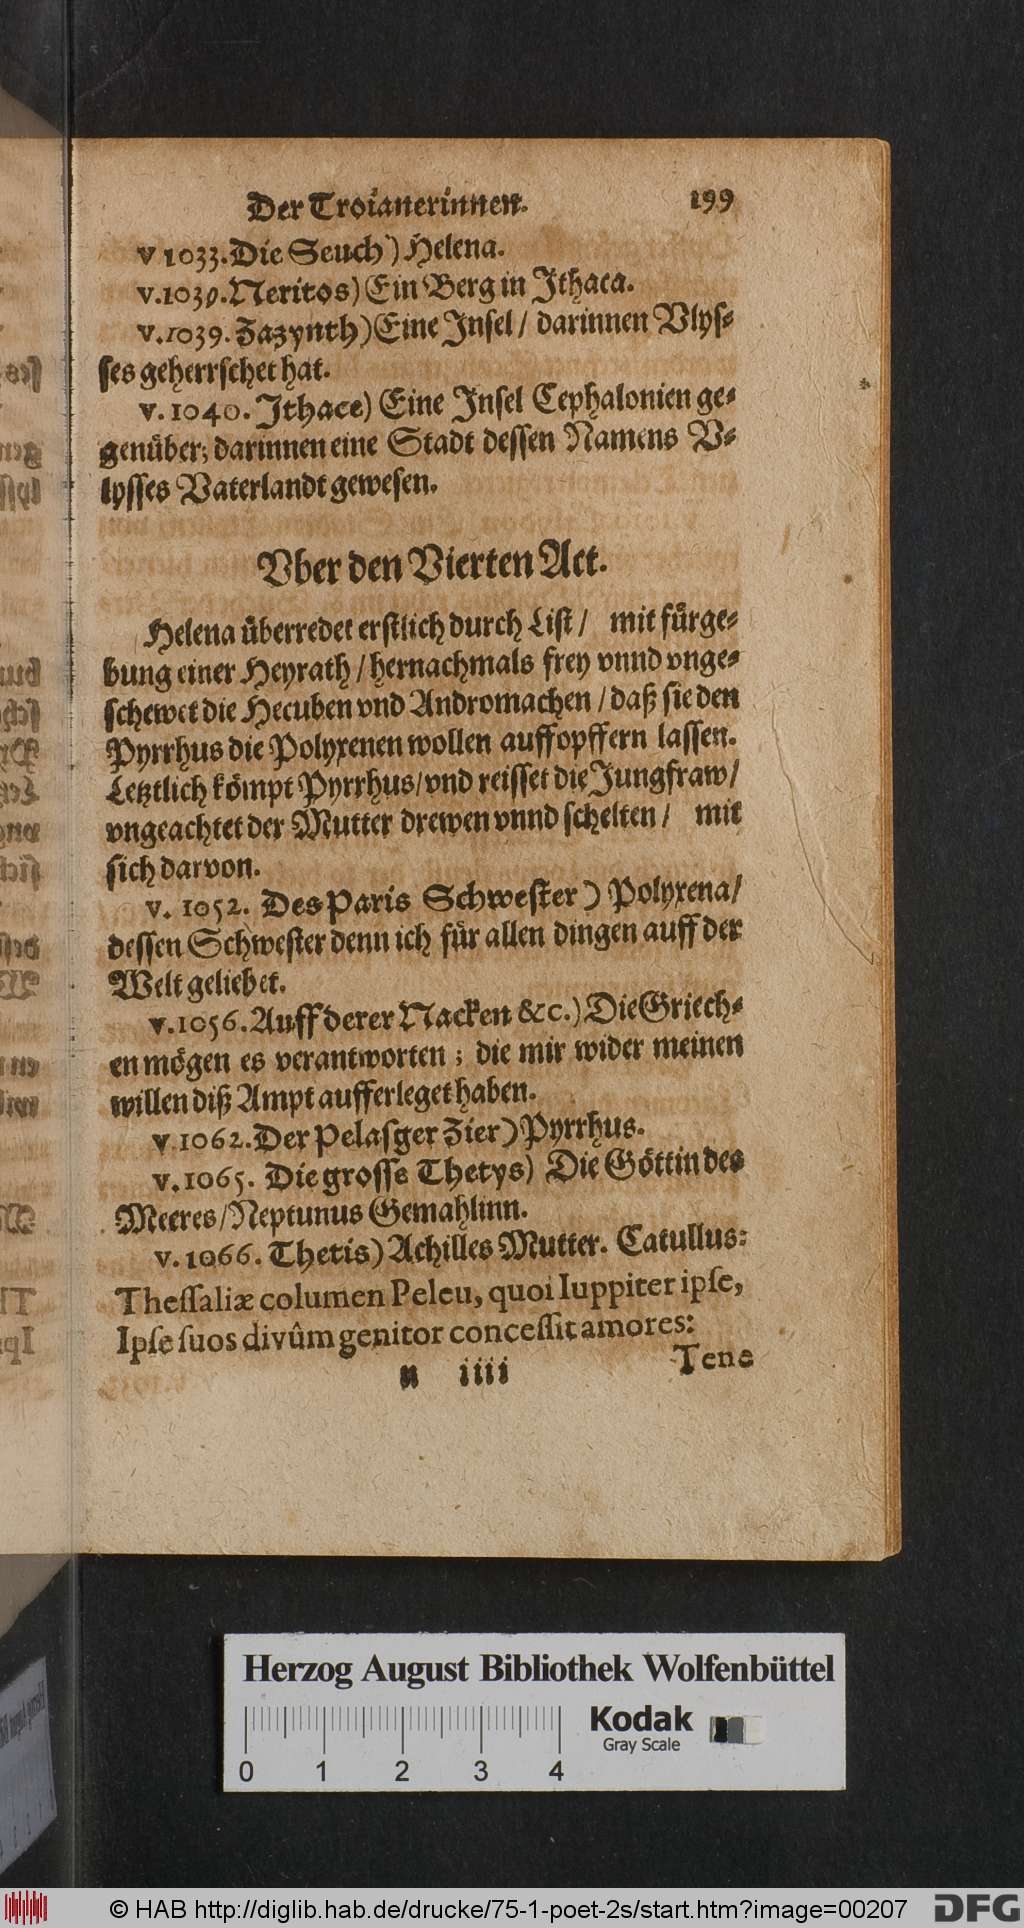 Der Troianerinnen. 199
v 1033. Die Seuch) Helena.
v. 1039. Neritos) Ein Berg in Ithaca.
v. 1039. Zazynth) Eine Insel / darinnen Vlys-
ses geherrschet hat.
v. 1040. Ithace) Eine Insel Cephalonien ge-
genüber; darinnen eine Stadt dessen Namens V-
lysses Vaterlandt gewesen.
Vber den Vierten Act.
Helena überredet erstlich durch List / mit fürge-
bung einer Heyrath / hernachmals frey vnnd vnge-
schewet die Hecuben vnd Andromachen / daß sie den
Pyrrhus die Polyxenen wollen auffopffern lassen.
Letztlich kömpt Pyrrhus / vnd reisset die Jungfraw /
vngeachtet der Mutter drewen vnnd schelten / mit
sich darvon.
v. 1052. Des Paris Schwester) Polyxena /
dessen Schwester denn ich für allen dingen auff der
Welt geliebet.
v. 1056. Auff derer Nacken &c.) Die Griech-
en mögen es verantworten; die mir wider meinen
willen diß Ampt aufferleget haben.
v. 1062. Der Pelasger Zier) Pyrrhus.
v. 1065. Die grosse Thetys) Die Göttin des
Meeres / Neptunus Gemahlinn.
v. 1066. Thetis) Achilles Mutter. Catullus:
Thessaliæ columen Peleu, quoi Iuppiter ipse,
Ipse suos divûm genitor concessit amores:
n iiii Tene
Herzog August Bibliothek Wolfenbüttel
Kodak
Gray Scale
0 1 2 3 4
© HAB http://diglib.hab.de/drucke/75-1-poet-2s/start.htm?image=00207 DFG